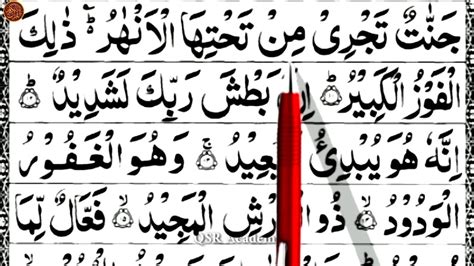 جَنّٰتٌ تَجْرِیْ مِنْ تَحْتِهَا الْاَنْهٰرُ ؕ ذٰلِكَ
الْفَوْزُ الْكَبِیْرُ ؕ بَطْشَ رَبِّكَ لَشَدِیْدٌ ؕ
اِنَّهٗ هُوَ یُبْدِئُ ۚ وَهُوَ الْغَفُوْرُ
الْوَدُوْدُ ۙ ذُو الْمَجِیْدُ ۙ فَعَّالٌ لِّمَا
QSR Academ